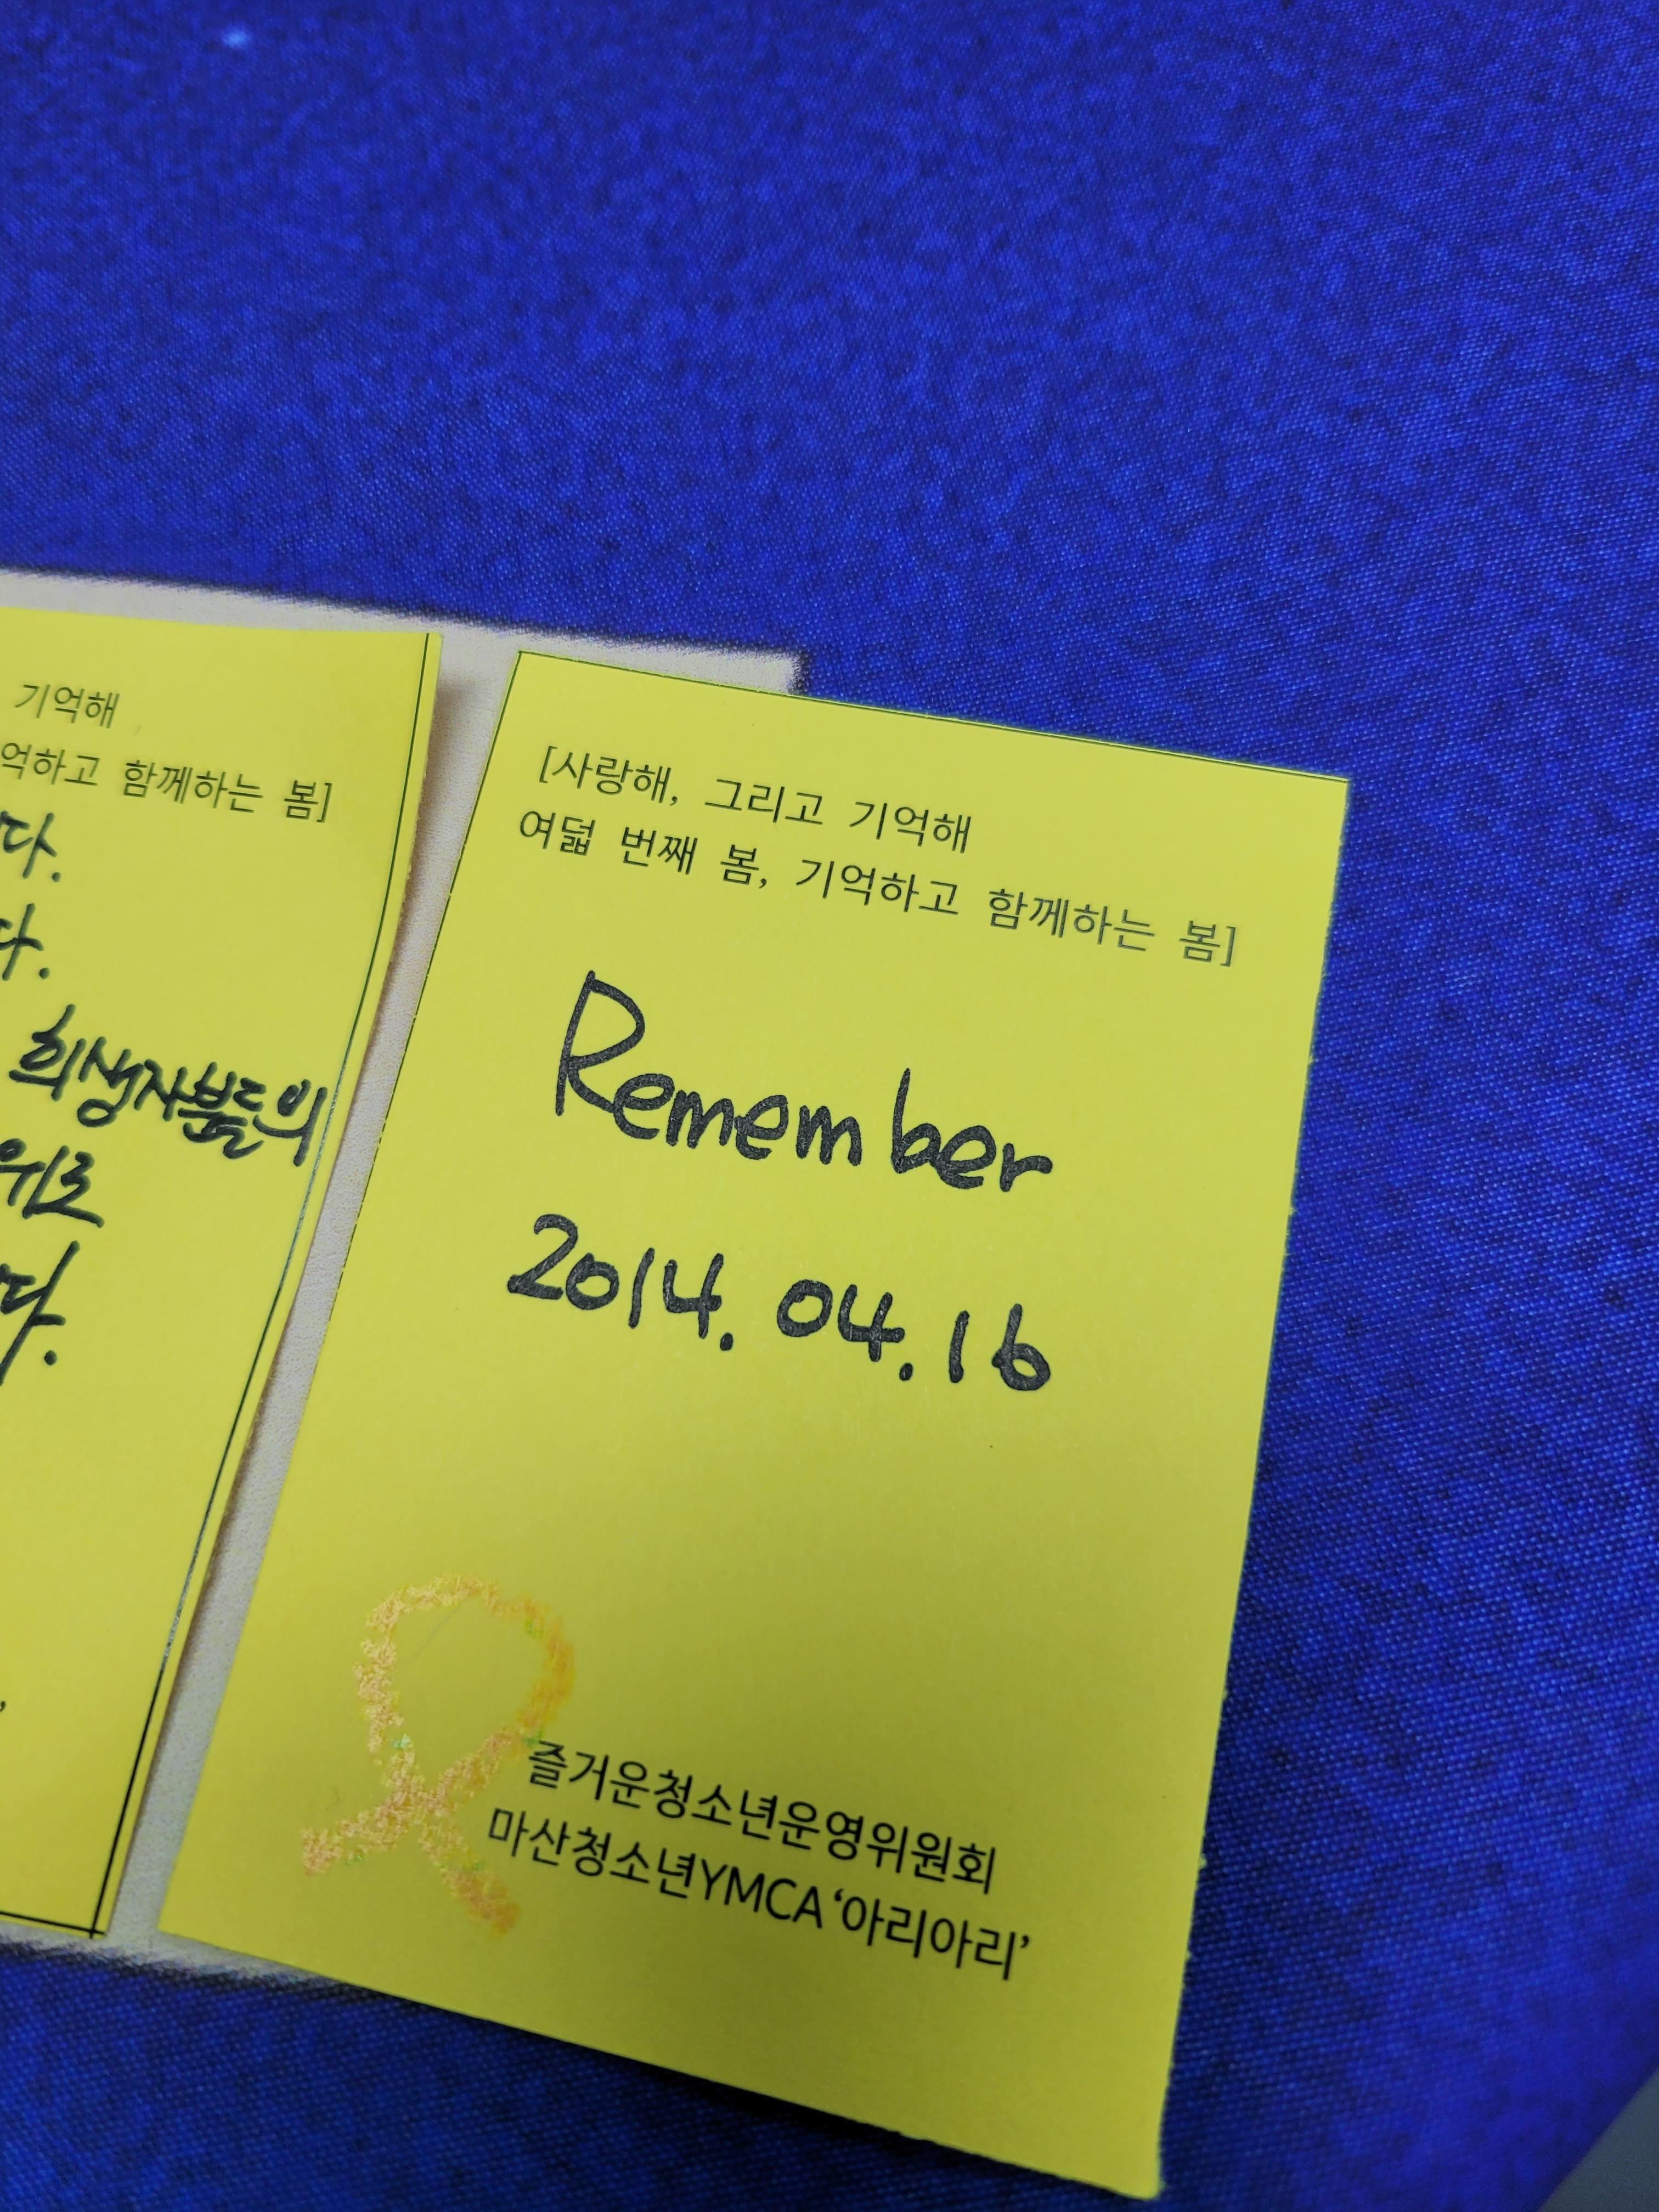 기억해
억하고 함께하는 봄]
다.
다.
희생자분들의
위로
다.
[사랑해, 그리고 기억해
여덟 번째 봄, 기억하고 함께하는 봄]
Remember
2014. 04. 16
즐거운청소년운영위원회
마산청소년YMCA '아리아리'